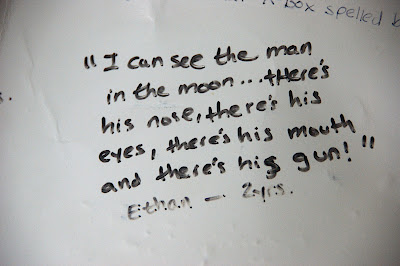 A box spelled b
s.
"I can see the man
in the moon...tHere's
his nose, there's his
eyes, there's his mouth
and there's his gun!"
Ethan - 2yrs.